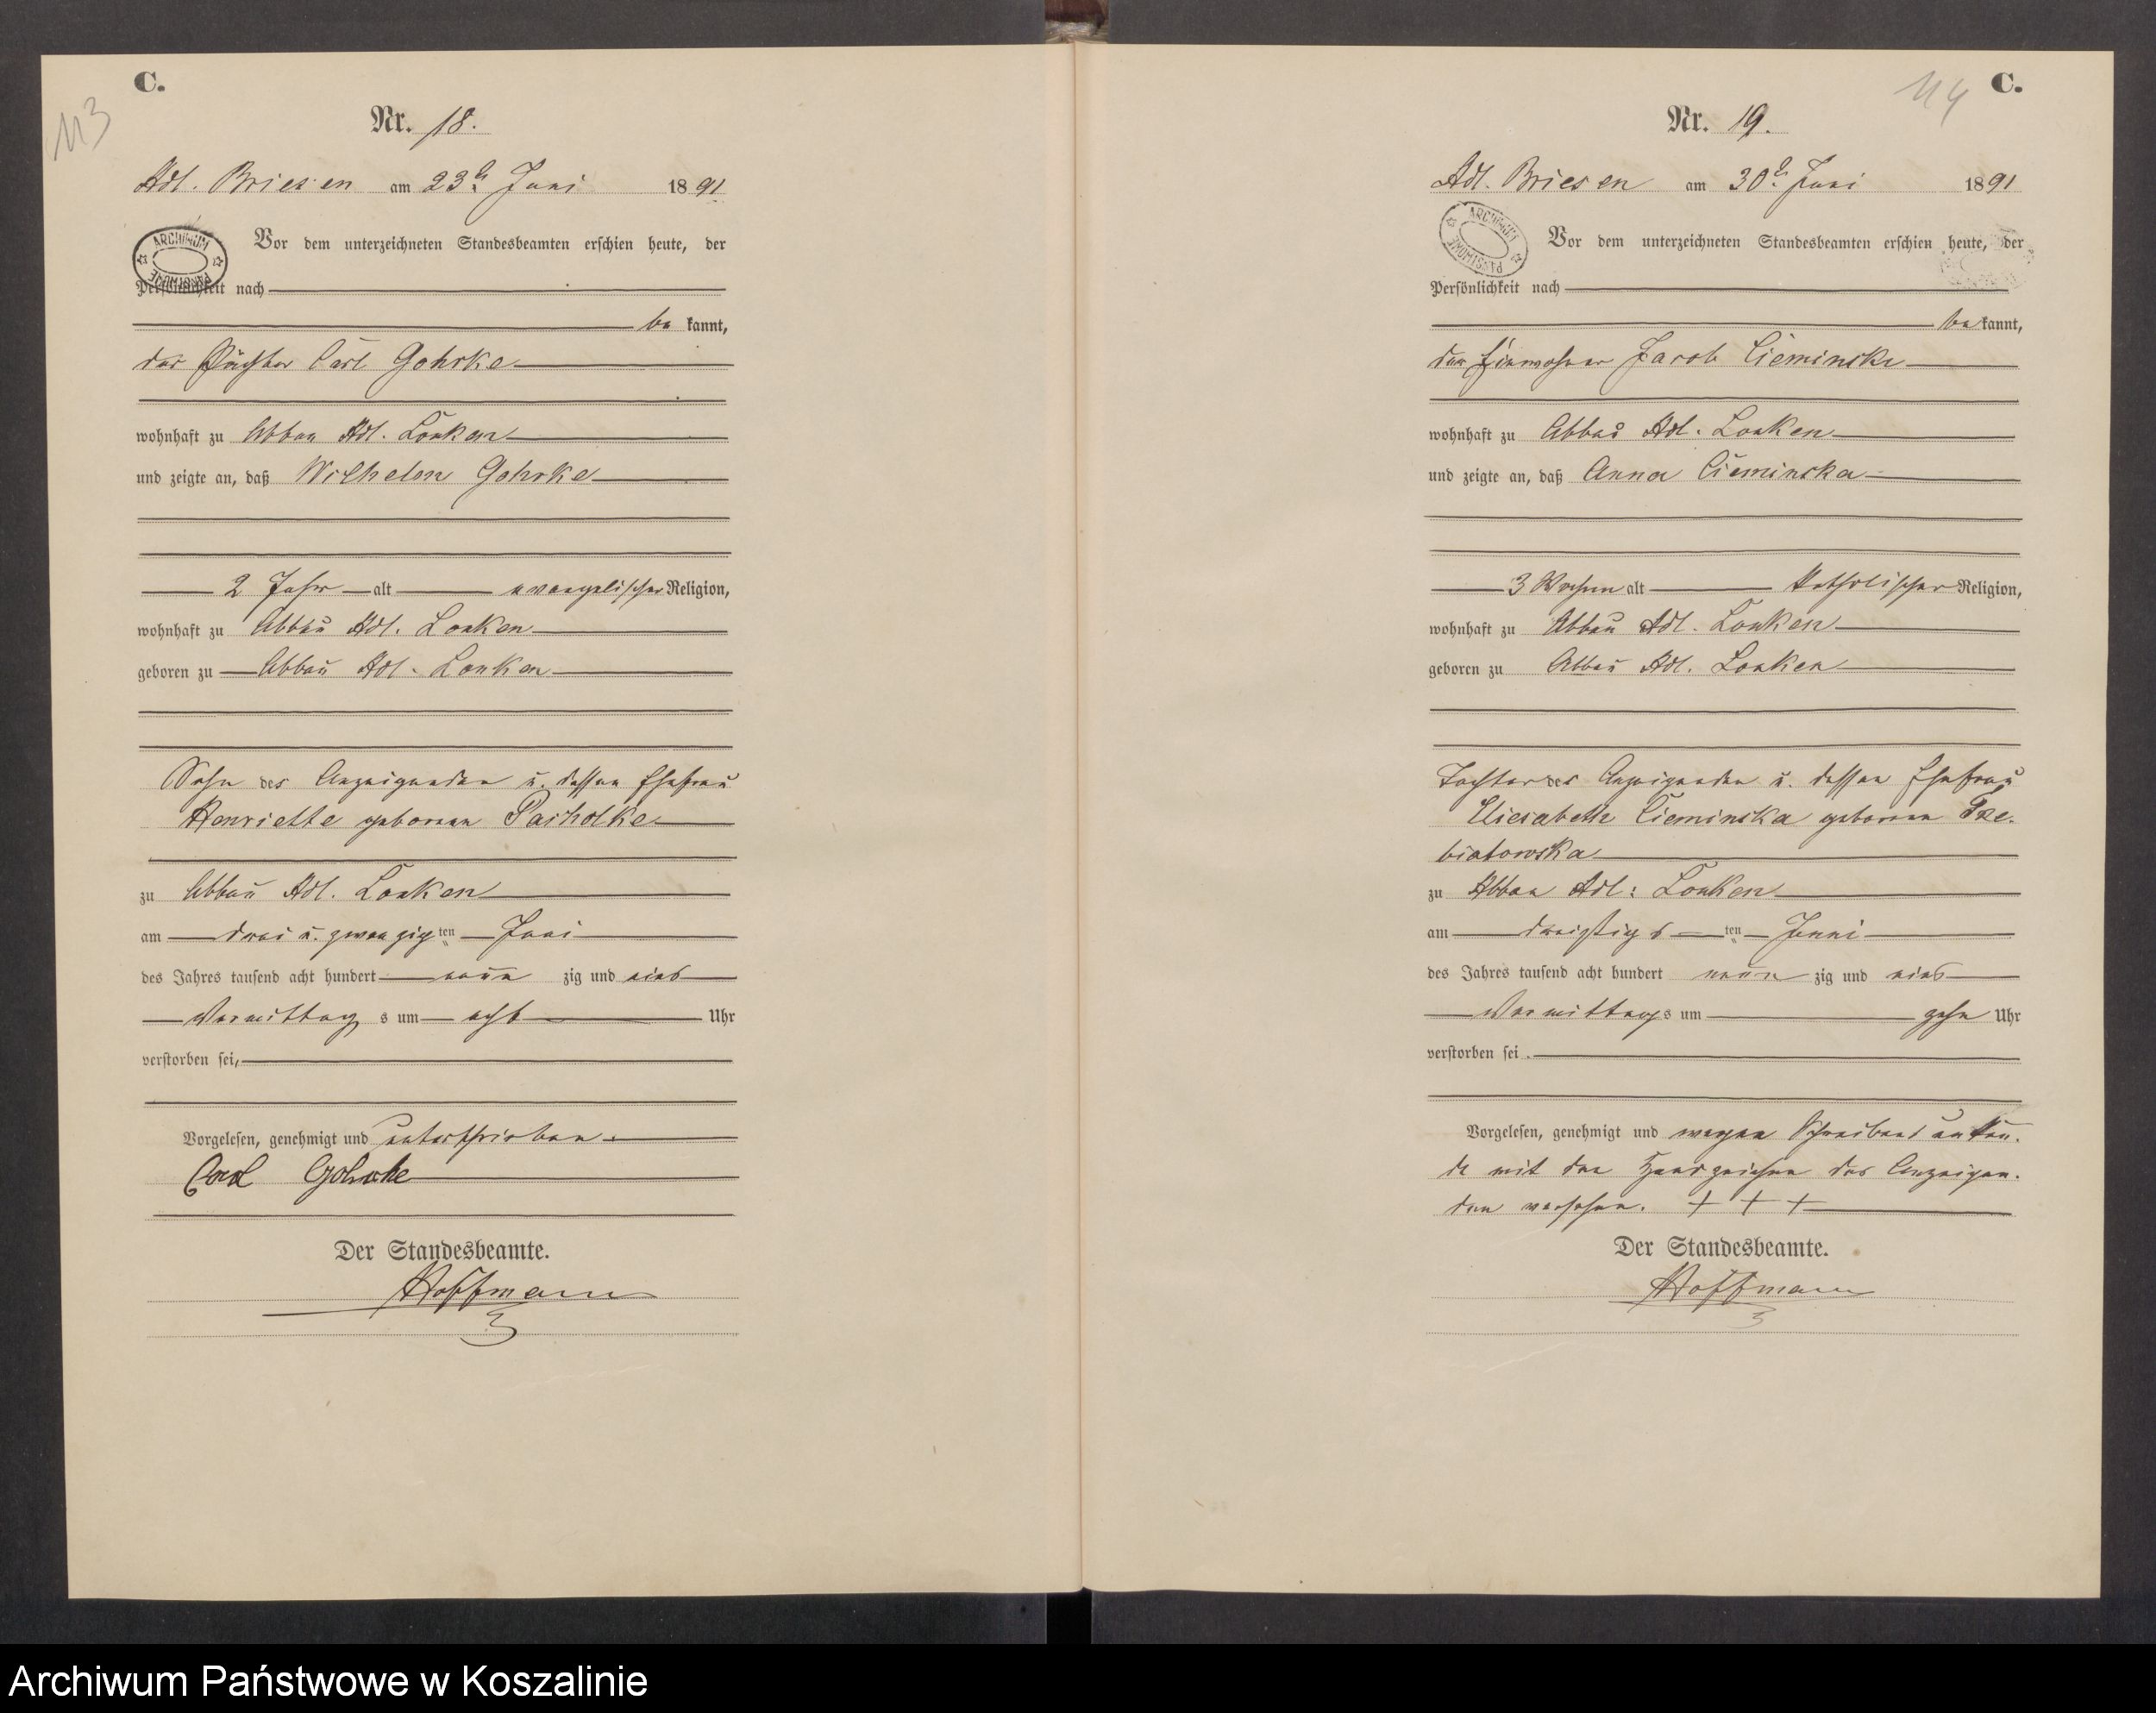 C.
113
Nr. 18.
Adl. Briesen am 23t. Juni 1891
ARCHIWUM PAŃSTWOWE
Vor dem unterzeichneten Standesbeamten erschien heute, der
Persönlichkeit nach
be kannt,
der Pächter Carl Gohrke
wohnhaft zu Abbau Adl. Lonken
und zeigte an, daß Wilhelm Gohrke
2 Jahr alt evangelischer Religion,
wohnhaft zu Abbau Adl. Lonken
geboren zu Abbau Adl. Lonken
Sohn des Anzeigenden u. dessen Ehefrau
Henriette geborenen Pacholke
zu Abbau Adl. Lonken
am drei u. zwanzig ten Juni
des Jahres tausend acht hundert neun zig und eins
Vormittag s um acht Uhr
verstorben sei,
Vorgelesen, genehmigt und unterschrieben.
Carl Gohrke
Der Standesbeamte.
Hoffmann
114
C.
Nr. 19.
Adl. Briesen am 30t. Juni 1891
ARCHIWUM PAŃSTWOWE
Vor dem unterzeichneten Standesbeamten erschien heute, der
Persönlichkeit nach
be kannt,
der Einwohner Jacob Cieminski
wohnhaft zu Abbau Adl. Lonken
und zeigte an, daß Anna Cieminska
3 Wochen alt katholischer Religion,
wohnhaft zu Abbau Adl. Lonken
geboren zu Abbau Adl. Lonken
Tochter des Anzeigenden u. dessen Ehefrau
Eliesabeth Cieminska geborenen
biatowska
zu Abbau Adl: Lonken
am dreißigs ten Junni
des Jahres tausend acht hundert neun zig und eins
Vormittags um zehn Uhr
verstorben sei.
Vorgelesen, genehmigt und wegen Schreibens unkun-
de mit den Handzeichen des Anzeigen-
den versehen. + + +
Der Standesbeamte.
Hoffmann
Archiwum Państwowe w Koszalinie